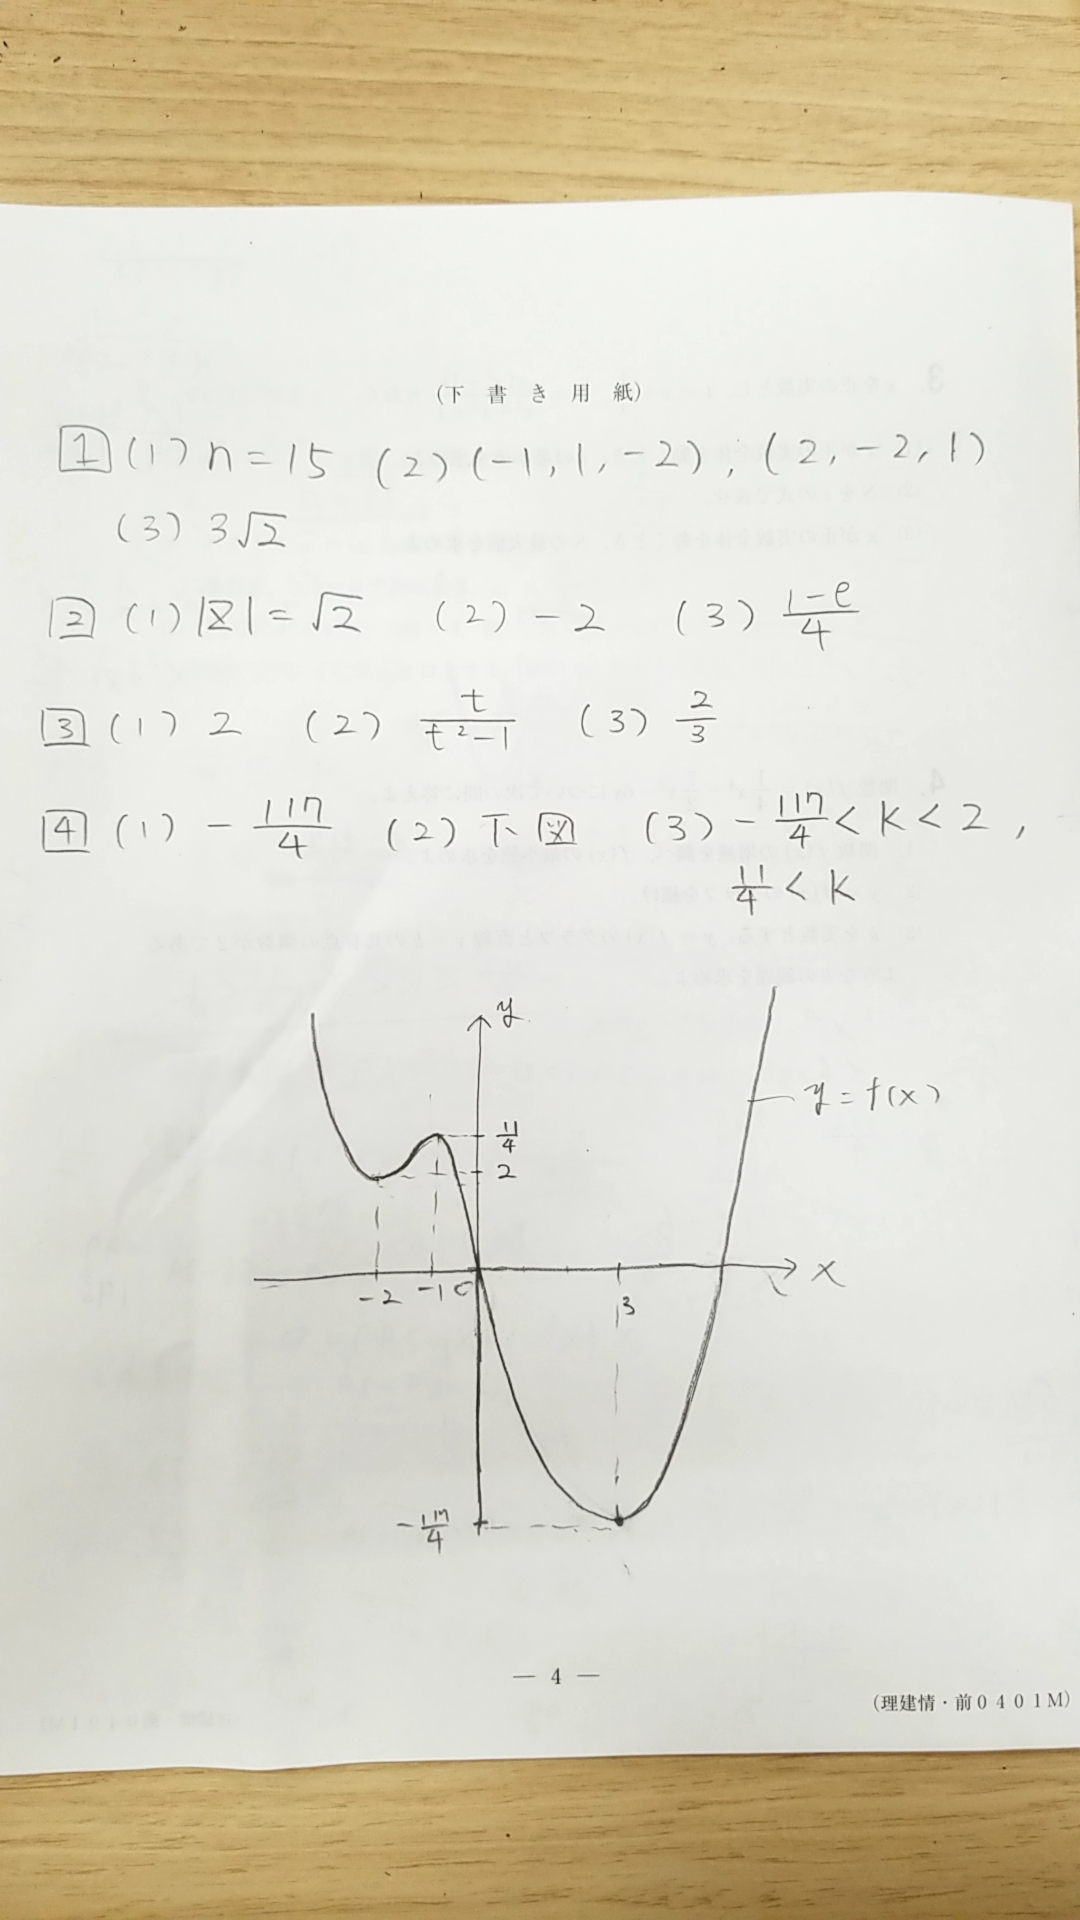 (下 書 き 用 紙)
1 (1) n = 15 (2) (-1, 1, -2), (2, -2, 1)
(3) 3√2
2 (1) |z| = √2 (2) -2 (3) (1-e)/4
3 (1) 2 (2) t/(t²-1) (3) 2/3
4 (1) -117/4 (2) 下図 (3) -117/4 < k < 2,
11/4 < k
y
y = f(x)
11/4
2
x
-2 -1 0 3
-117/4
— 4 —
(理建情・前0401M)